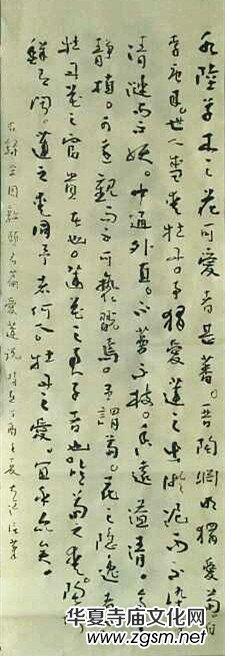 水陸草木之花可愛者甚蕃。晋陶淵明獨愛菊。自
李唐來。世人盛愛牡丹。予獨愛蓮之出淤泥而不染。濯
清漣而不妖。中通外直。不蔓不枝。香遠溢清。亭亭
静植。可遠觀而不可褻翫焉。予謂菊。花之隱逸者
牡丹花之富貴者也。蓮花之君子者也。噫菊之愛陶後
鮮有聞。蓮之愛同予者何人。牡丹之愛。宜乎衆矣。
右録宋周敦頤名篇愛蓮說 時在丁酉之夏
华夏寺庙文化网
www.zgsm.net